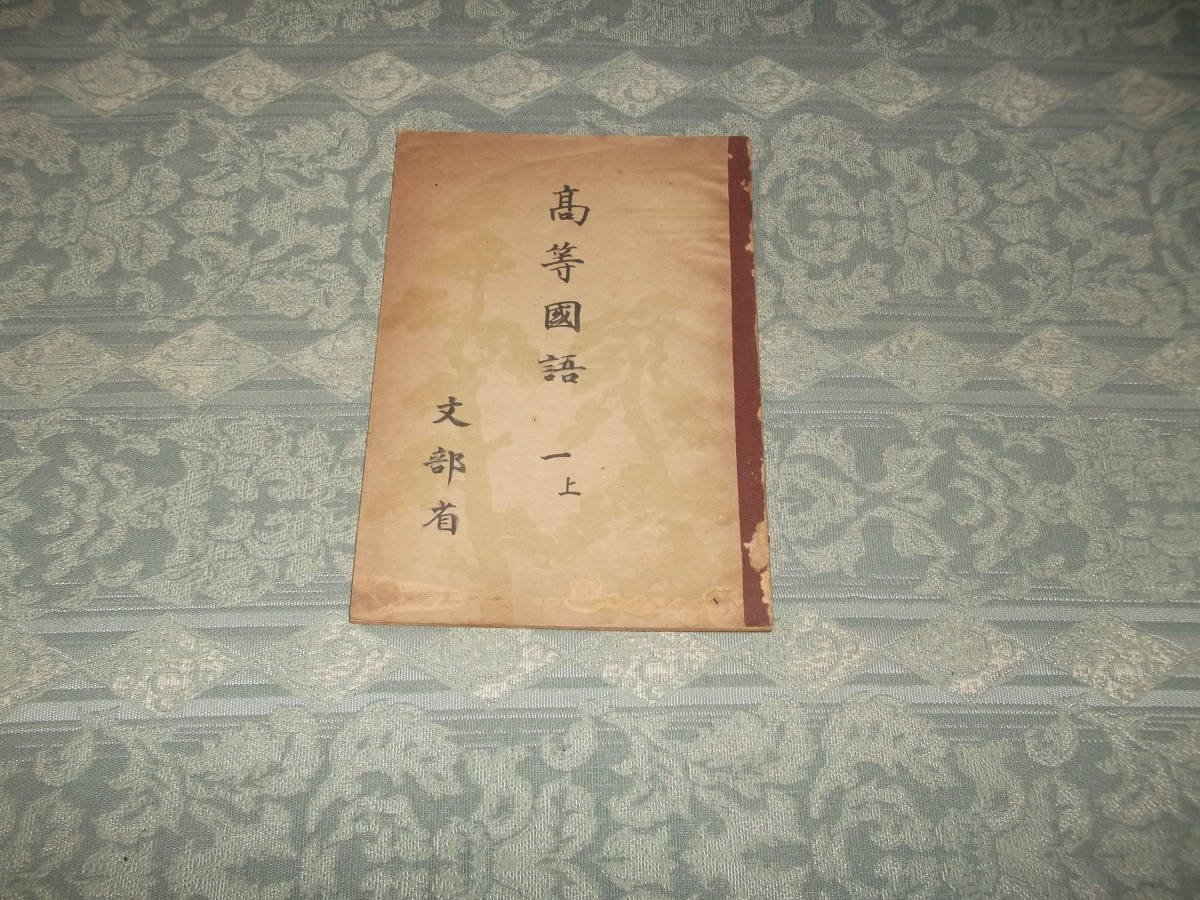 髙等國語 一上
文部省